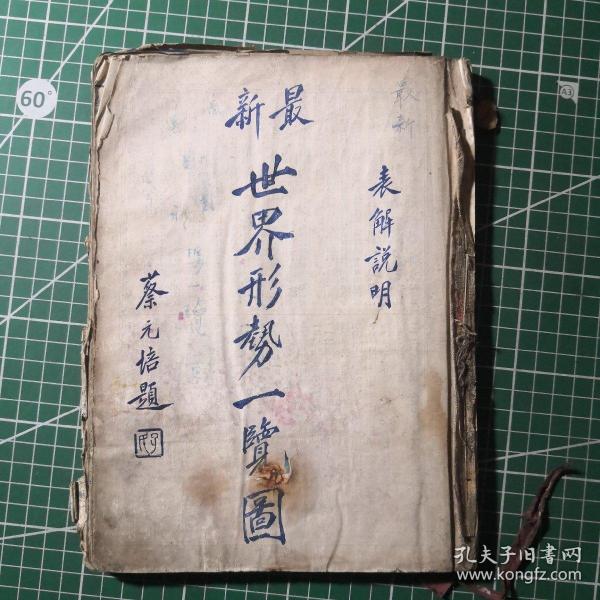 最新
表解說明
最新
世界形勢一覽圖
蔡元培題
60°
A3
孔夫子旧書网
www.kongfz.com